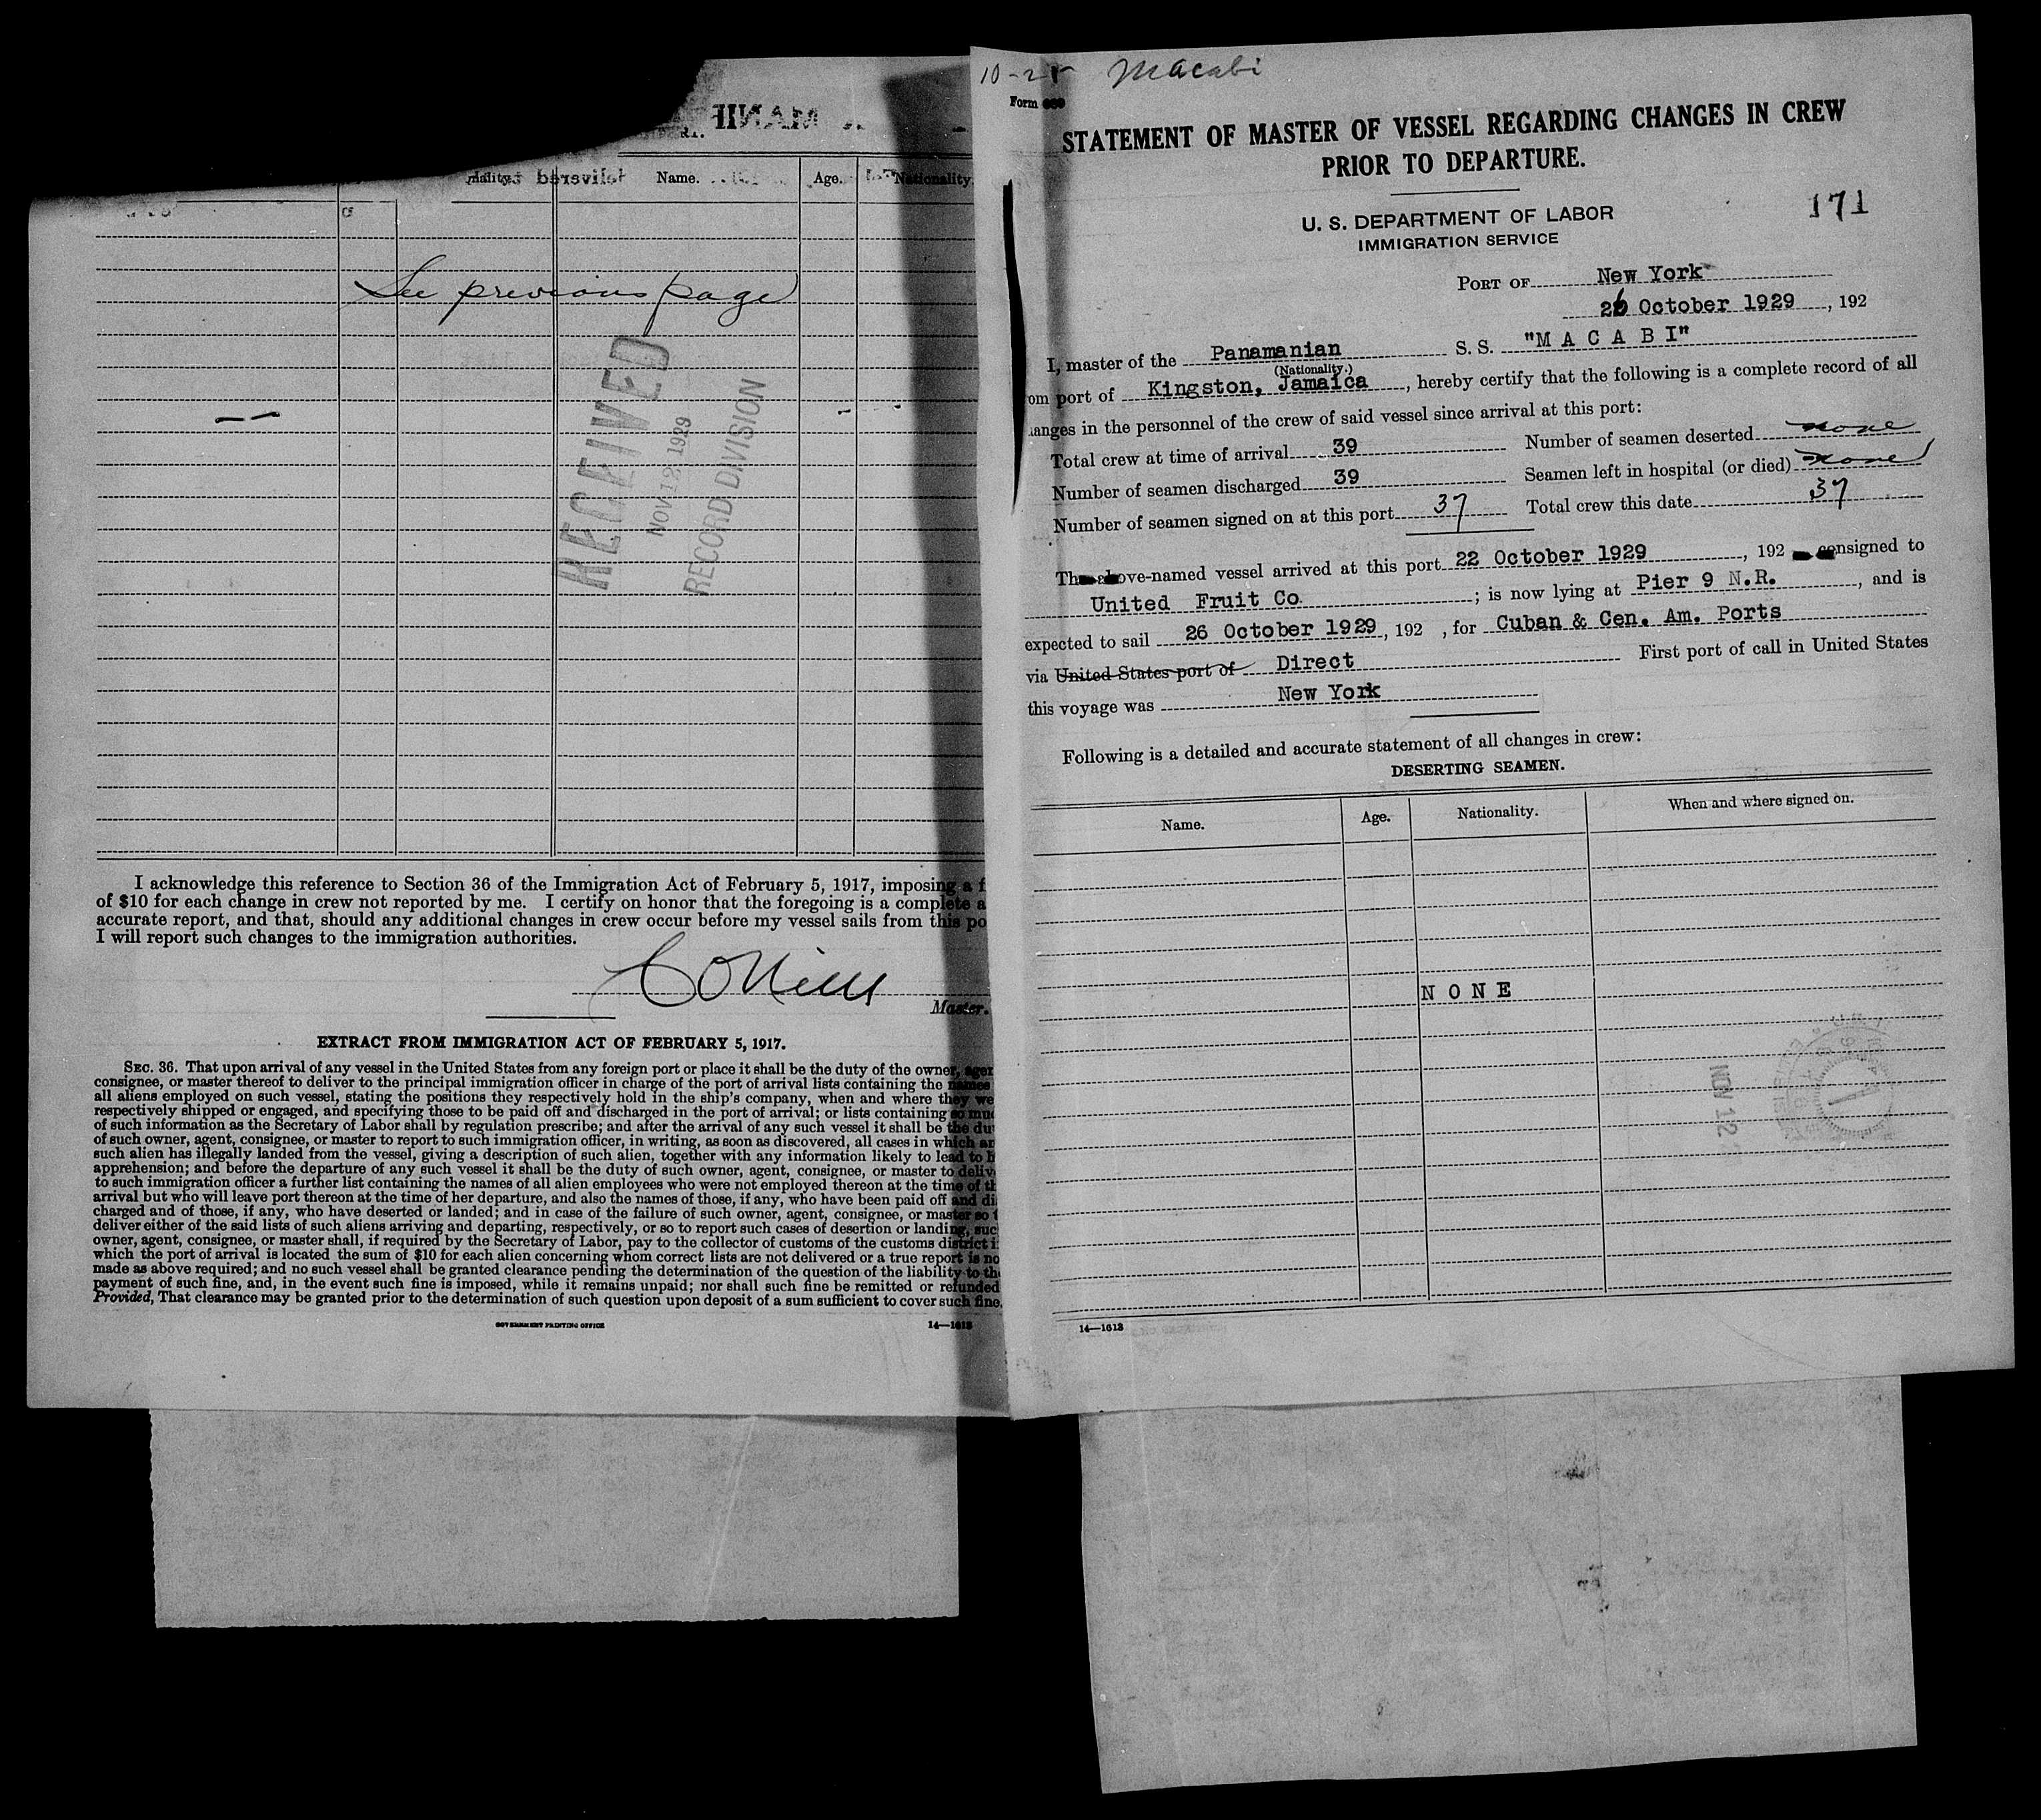 Name. Age. Nationality.
See previous page
RECEIVED
NOV 12 1929
RECORD DIVISION
I acknowledge this reference to Section 36 of the Immigration Act of February 5, 1917, imposing a f
of $10 for each change in crew not reported by me. I certify on honor that the foregoing is a complete a
accurate report, and that, should any additional changes in crew occur before my vessel sails from this po
I will report such changes to the immigration authorities.
Master.
EXTRACT FROM IMMIGRATION ACT OF FEBRUARY 5, 1917.
SEC. 36. That upon arrival of any vessel in the United States from any foreign port or place it shall be the duty of the owner, agen
consignee, or master thereof to deliver to the principal immigration officer in charge of the port of arrival lists containing the names
all aliens employed on such vessel, stating the positions they respectively hold in the ship's company, when and where they we
respectively shipped or engaged, and specifying those to be paid off and discharged in the port of arrival; or lists containing so muc
of such information as the Secretary of Labor shall by regulation prescribe; and after the arrival of any such vessel it shall be the du
of such owner, agent, consignee, or master to report to such immigration officer, in writing, as soon as discovered, all cases in which an
such alien has illegally landed from the vessel, giving a description of such alien, together with any information likely to lead to h
apprehension; and before the departure of any such vessel it shall be the duty of such owner, agent, consignee, or master to delive
to such immigration officer a further list containing the names of all alien employees who were not employed thereon at the time of th
arrival but who will leave port thereon at the time of her departure, and also the names of those, if any, who have been paid off and di
charged and of those, if any, who have deserted or landed; and in case of the failure of such owner, agent, consignee, or master so t
deliver either of the said lists of such aliens arriving and departing, respectively, or so to report such cases of desertion or landing, suc
owner, agent, consignee, or master shall, if required by the Secretary of Labor, pay to the collector of customs of the customs district i
which the port of arrival is located the sum of $10 for each alien concerning whom correct lists are not delivered or a true report is no
made as above required; and no such vessel shall be granted clearance pending the determination of the question of the liability to the
payment of such fine, and, in the event such fine is imposed, while it remains unpaid; nor shall such fine be remitted or refunded
Provided, That clearance may be granted prior to the determination of such question upon deposit of a sum sufficient to cover such fine.
GOVERNMENT PRINTING OFFICE 14—1613
Macabi
Form
STATEMENT OF MASTER OF VESSEL REGARDING CHANGES IN CREW
PRIOR TO DEPARTURE.
U. S. DEPARTMENT OF LABOR
IMMIGRATION SERVICE
171
PORT OF New York
26 October 1929, 192
I, master of the Panamanian S. S. "M A C A B I"
(Nationality.)
om port of Kingston, Jamaica, hereby certify that the following is a complete record of all
anges in the personnel of the crew of said vessel since arrival at this port:
Total crew at time of arrival 39 Number of seamen deserted none
Number of seamen discharged 39 Seamen left in hospital (or died) none
Number of seamen signed on at this port 37 Total crew this date 37
The above-named vessel arrived at this port 22 October 1929, 192 consigned to
United Fruit Co. ; is now lying at Pier 9 N.R. , and is
expected to sail 26 October 1929, 192 , for Cuban & Cen. Am. Ports
via United States port of Direct First port of call in United States
this voyage was New York
Following is a detailed and accurate statement of all changes in crew:
DESERTING SEAMEN.
Name. Age. Nationality. When and where signed on.
N O N E
NOV 12
14—1613